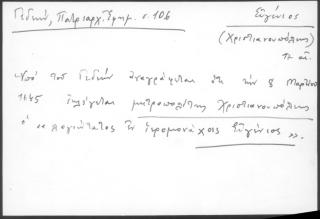 Γεδεών, Πατριαρχ. Ἐφημ. σ. 106
Εὐγένιος
(Χριστιανουπόλεως)
17 αἰ.
Ὑπό τοῦ Γεδεών ἀναγράφεται ὅτι τήν 8 Μαρτίου
1645 ἐκλέγεται μητροπολίτης Χριστιανουπόλεως
ὁ «λογιώτατος ἐν ἱερομονάχοις Εὐγένιος».